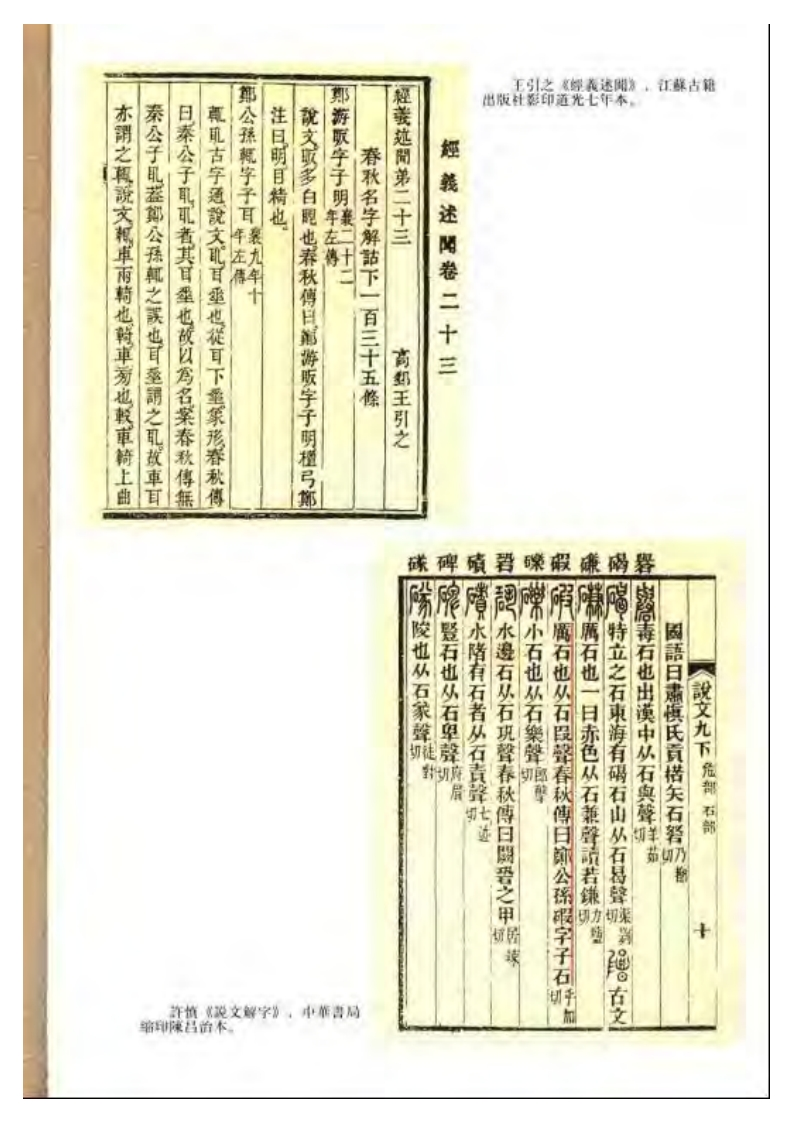 王引之《經義述聞》，江蘇古籍
出版社影印道光七年本。
經義述聞卷二十三
經義述聞弟二十三　高郵王引之
春秋名字解詁下一百三十五條
鄭游眅字子明襄二十二年左傳
說文眅多白眼也春秋傳曰鄭游眅字子明檀弓鄭
注曰明目精也
鄭公孫輒字子耳襄九年十年左傳
輒耴古字通說文耴耳垂也從耳下垂象形春秋傳
曰秦公子耴耴者其耳垂也故以爲名案春秋傳無
秦公子耴蓋鄭公孫輒之誤也耳垂謂之耴故車耳
亦謂之輒說文輒車兩輢也輢車旁也較車輢上曲
說文九下　危部　石部　十
國語曰肅愼氏貢楛矢石砮乃都切
礜
毒石也出漢中从石與聲羊茹切
碣
特立之石東海有碣石山从石曷聲渠列切　古文
磏
厲石也一曰赤色从石兼聲讀若鎌力鹽切
碬
厲石也从石叚聲春秋傳曰鄭公孫碬字子石乎加切
礫
小石也从石樂聲郎擊切
碧
水邊石从石巩聲春秋傳曰闕碧之甲居竦切
磧
水陼有石者从石責聲七迹切
碑
豎石也从石卑聲府眉切
䃍
陊也从石㒸聲徒對切
許慎《説文解字》，中華書局
縮印陳昌治本。